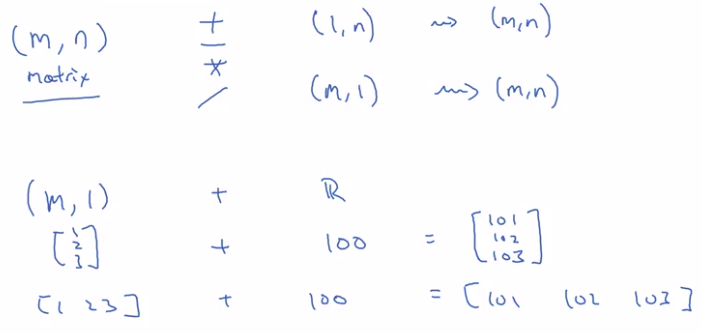 (m, n) + (1, n) ⇝ (m, n)
matrix − * / (m, 1) ⇝ (m, n)
(m, 1) + ℝ
[1 2 3] + 100 = [101 102 103]
[1 2 3] + 100 = [101 102 103]